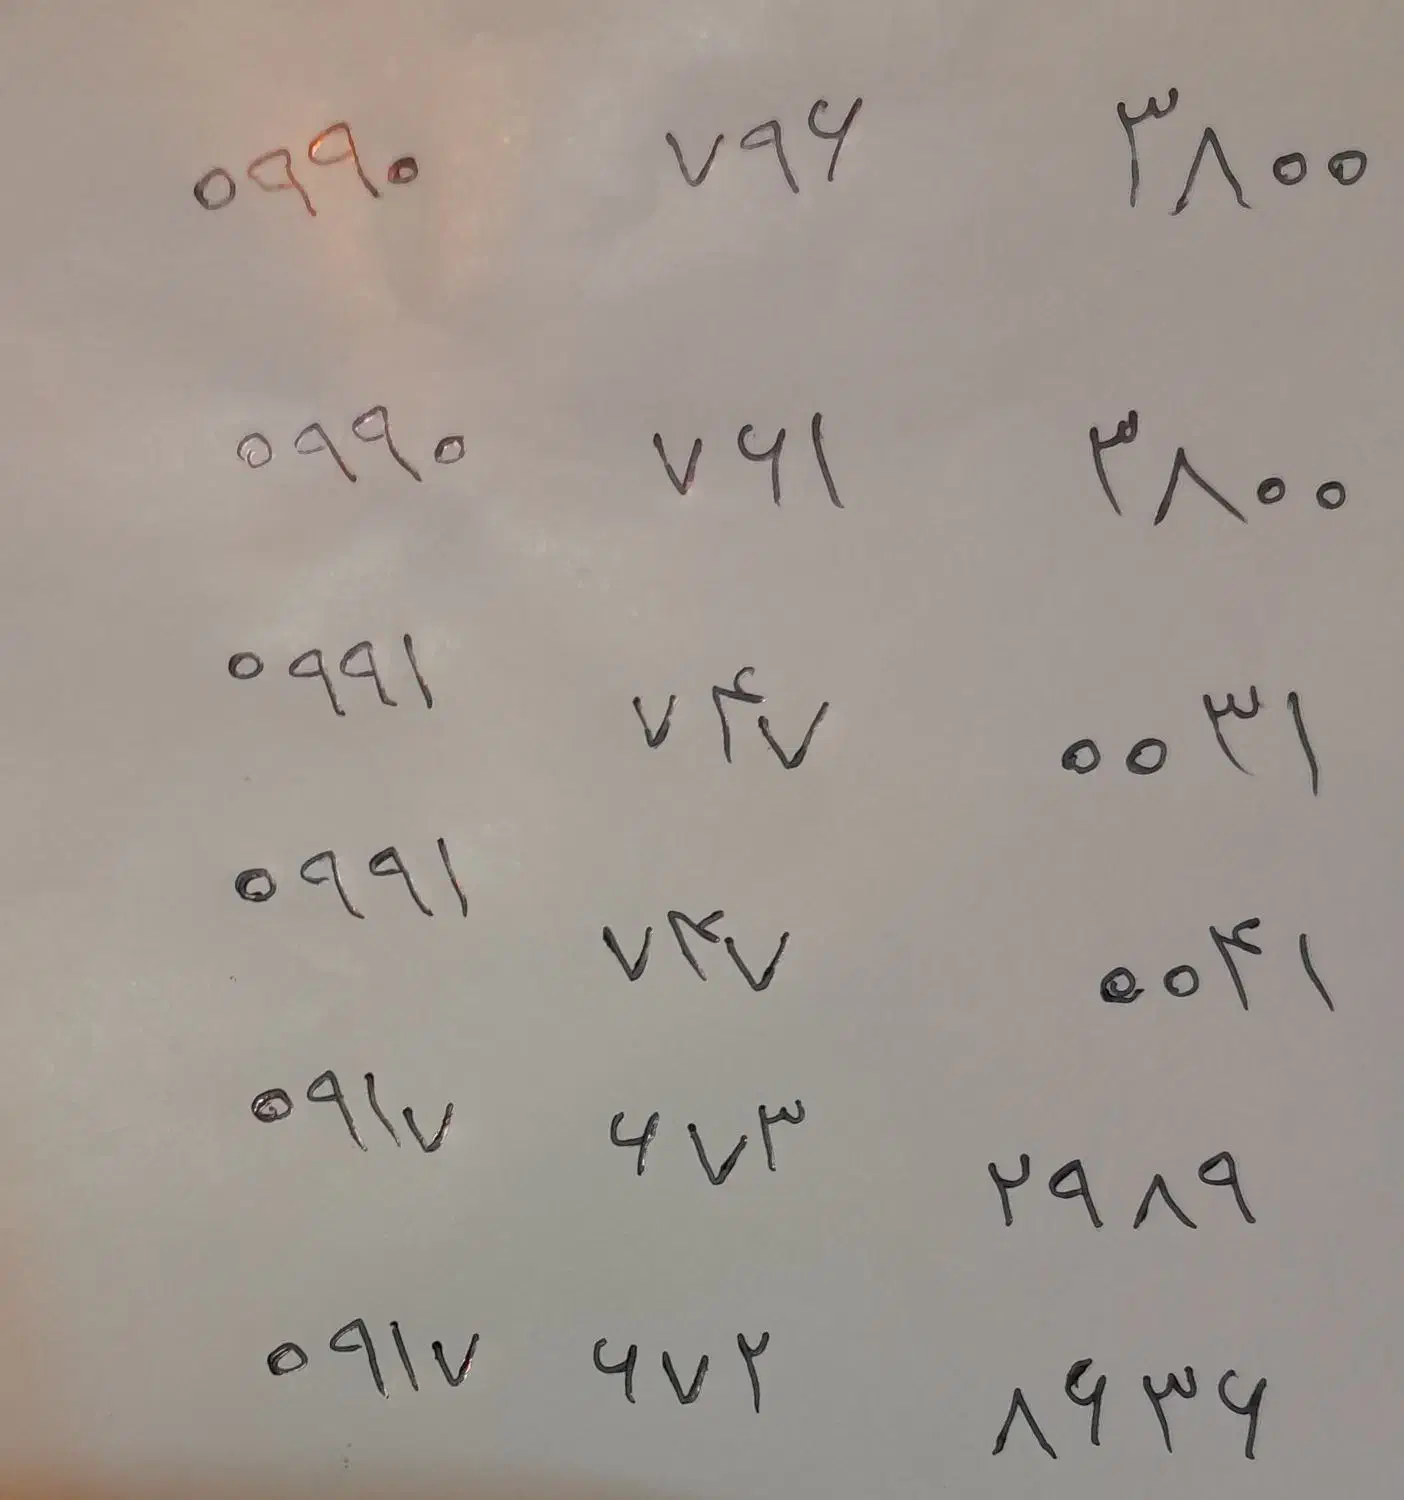 ۰۹۹۰ ۷۹۶ ۳۸۰۰
۰۹۹۰ ۷۶۱ ۳۸۰۰
۰۹۹۱ ۷۴۷ ۰۰۳۱
۰۹۹۱ ۷۴۷ ۰۰۴۱
۰۹۱۷ ۶۷۳ ۲۹۸۹
۰۹۱۷ ۶۷۲ ۸۶۳۶